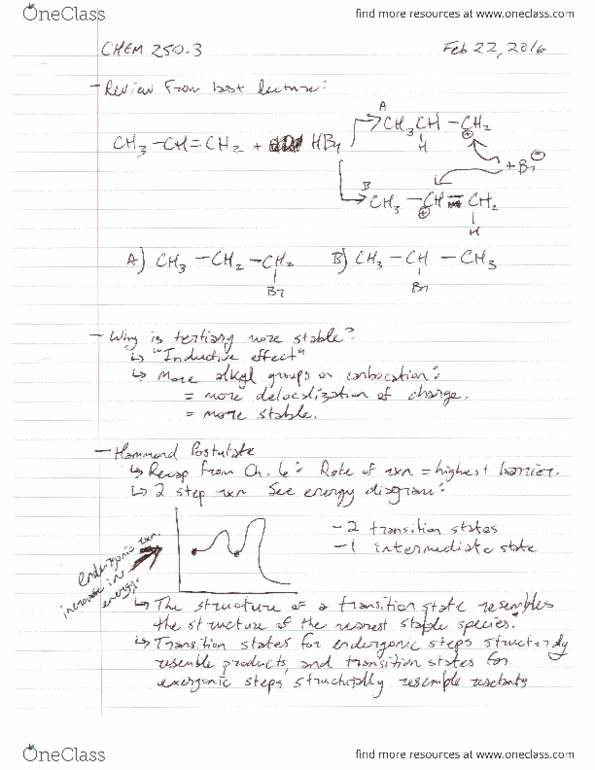 OneClass
find more resources at www.oneclass.com
CHEM 250-3
Feb 22, 2016
- Review From last lecture:
A
CH3 CH - CH2
⊕
H
CH3 - CH = CH2 + HBr
+ Br ⊖
B
CH3 - CH - CH2
⊕
H
A) CH3 - CH2 - CH2
Br
B) CH3 - CH - CH3
Br
- Why is tertiary more stable?
↳ "Inductive effect"
↳ More alkyl groups on carbocation:
= more delocalization of charge.
= more stable.
- Hammond Postulate
↳ Recap from Ch. 6: Rate of rxn = highest barrier.
↳ 2 step rxn See energy diagram:
endergonic rxn.
increase in
energy.
- 2 transition states
- 1 intermediate state
↳ The structure of a transition state resembles
the structure of the nearest stable species.
↳ Transition states for endergonic steps structurally
resemble products, and transition states for
exergonic steps structurally resemble reactants
OneClass
find more resources at www.oneclass.com